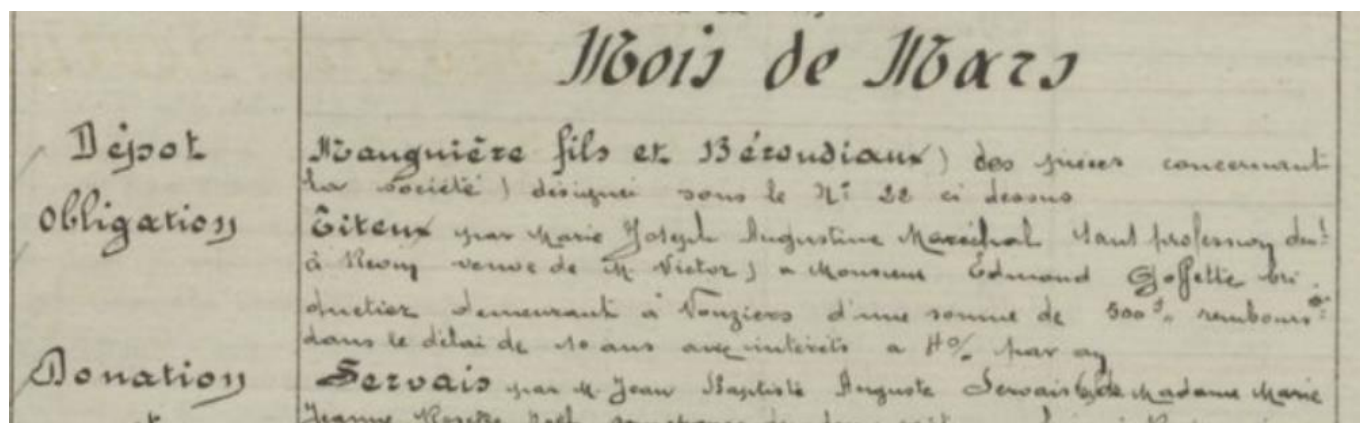 Mois de Mars
Dépot
Mauguière fils et Béroudiaux) des pièces concernant
la société) désignée sous le N° 22 ci dessus
Obligation
Titeux par Marie Joseph Augustine Maréchal sans profession demt
à Revin veuve de M. Victor) a Monsieur Edmond Goffette bri
quetier demeurant à Vouziers d'une somme de 500 f. rembours
dans le délai de 10 ans aux intérêts a 4% par an
Donation
Servais par M. Jean Baptiste Auguste Servais de Madame Marie
Jeanne